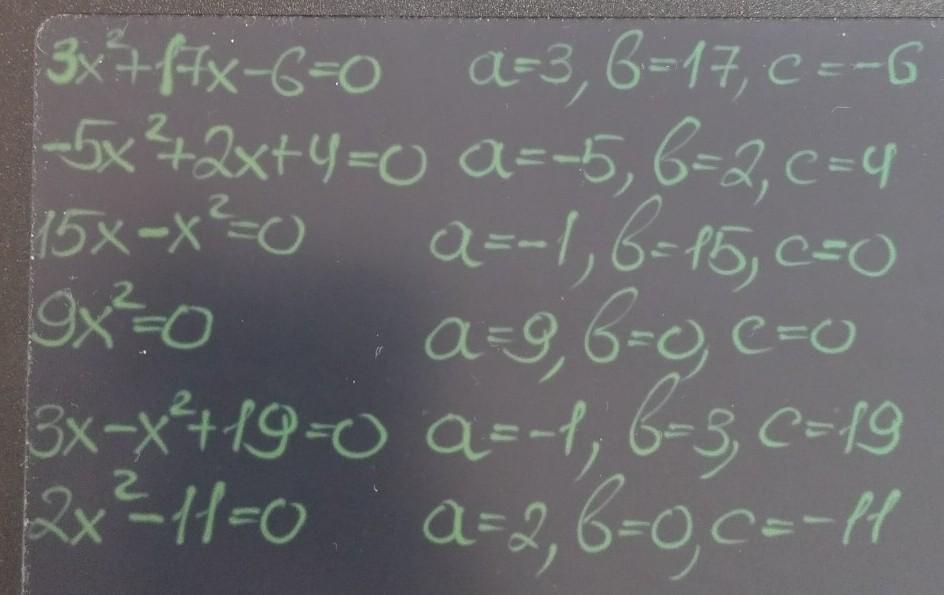 3x²+17x-6=0 a=3, b=17, c=-6
-5x²+2x+4=0 a=-5, b=2, c=4
15x-x²=0 a=-1, b=15, c=0
9x²=0 a=9, b=0, c=0
3x-x²+19=0 a=-1, b=3, c=19
2x²-11=0 a=2, b=0, c=-11